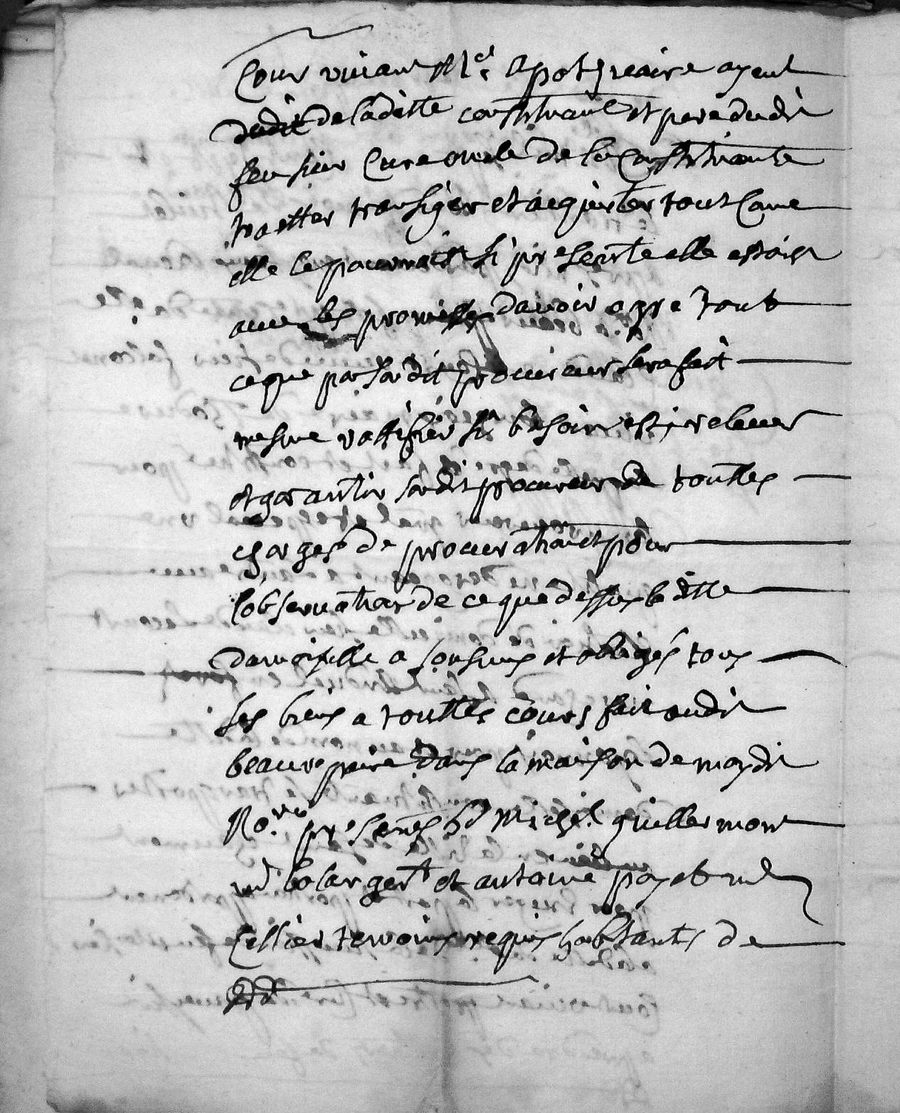 Cour vivant Mre apotiqeaire ayeul
dudit de laditte constituante et pere dudit
feu sieur Cure oncle de la Constituante
traitter transiger et acquister tout Come
elle le pourrait sy presente elle estoist
avec les promesses davoir agré tout
ce que par sondit procureur sera fait
mesme rattifier sy besoin est, relever
et garantir sondit procureur de touttes
charges de procuration et pour
l'observation de ce que dessus laditte
damoiselle a soubmis et obligés tous
ses biens a touttes cours fait audit
beaurepaire dans la maison de moydit
No.re presents sr Michel guillermont
md boulanger et antoine payet md
Cellier temoins requis habitants de